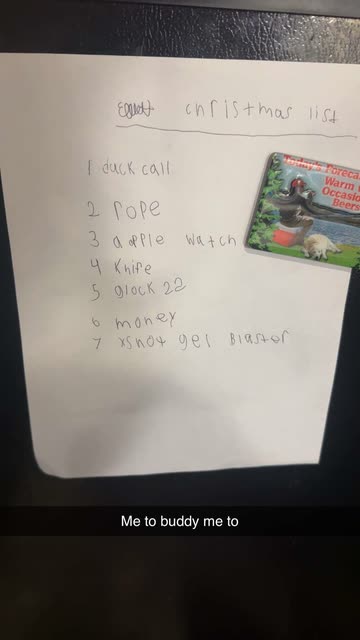 christmas list
1 duck call
2 rope
3 apple watch
4 Knife
5 glock 22
6 money
7 xsnot gel Blaster
Today's Forecast
Warm
Occasio
Beers
Me to buddy me to